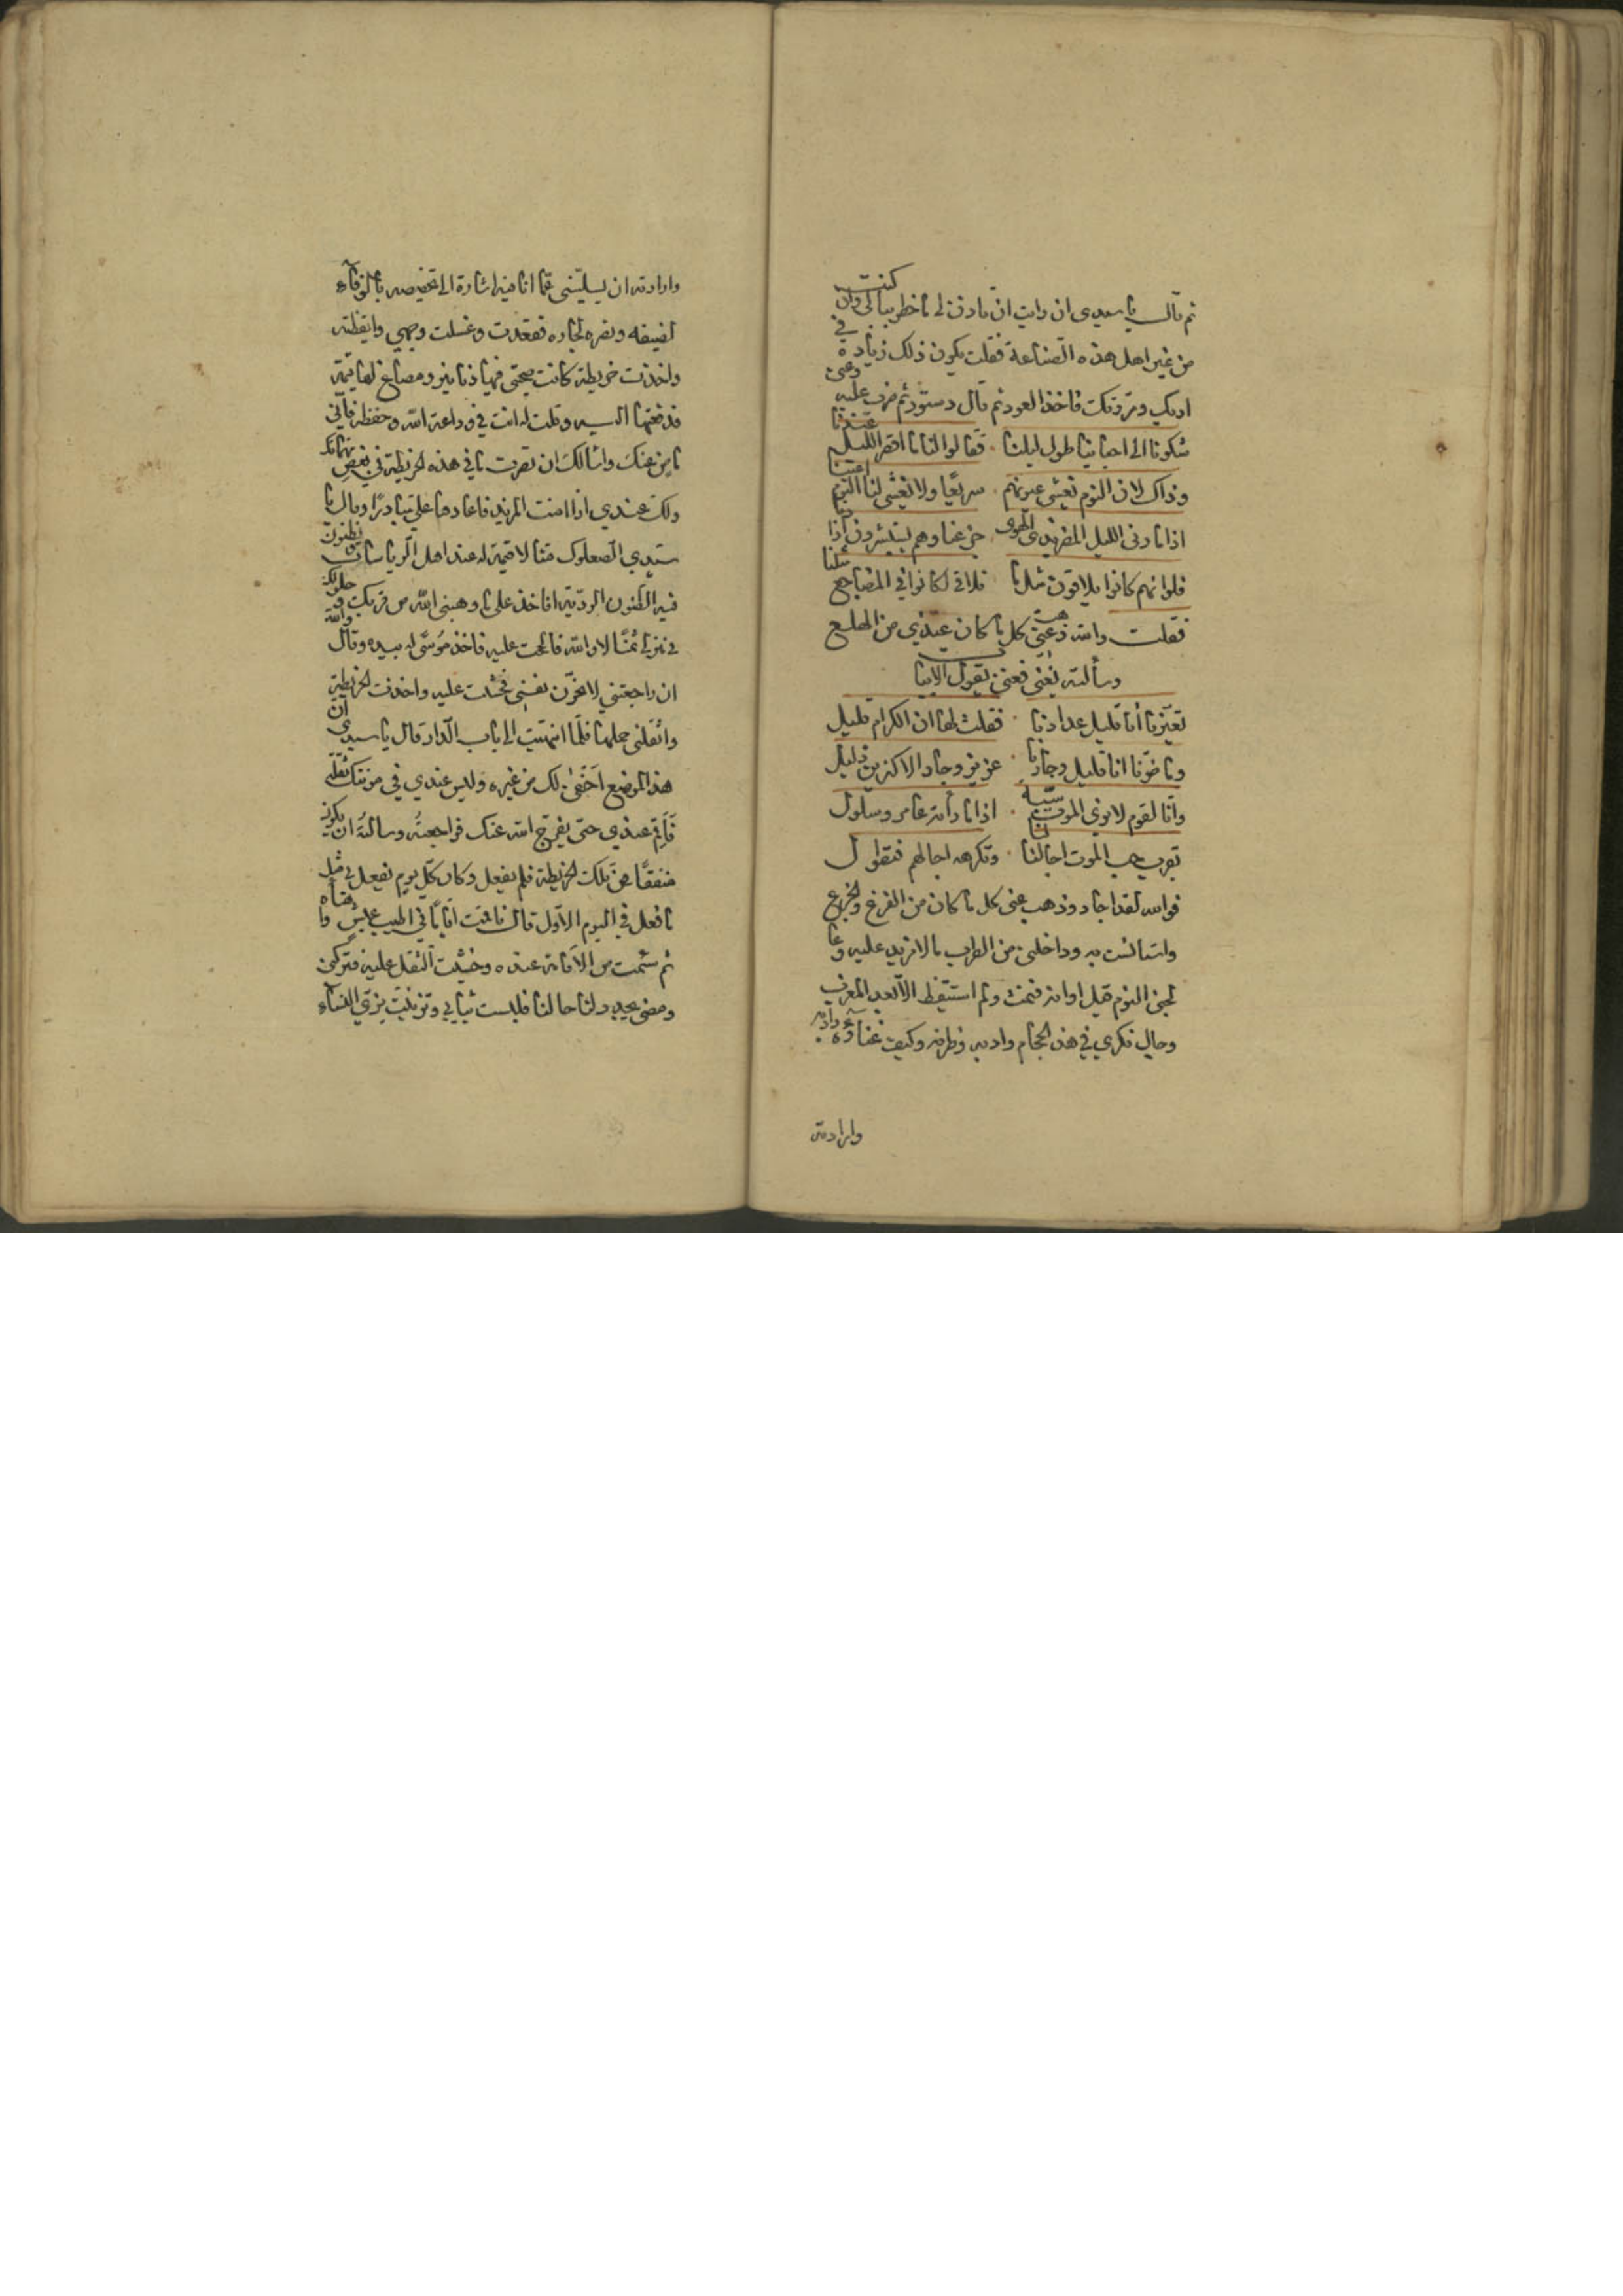 ثم قال يا سيدي ان رايت ان تاذن لي ما خطر ببالي وان كنت
من غير اهل هذه الصناعة فقلت يكون ذلك زيادة في
ادبك ومروتك فاخذ العود ثم قال دستور ثم ضرب عليه وغنى
شكونا الى احبابنا طول ليلنا فقالوا لنا ما اقصر الليل عندنا
وذاك لان النوم يغشى عيونهم سريعا ولا يغشى لنا النوم اعينا
اذا ما دنى الليل المضر بذي الهوى جزعنا وهم يستبشرون اذا دنا
فلو انهم كانوا يلاقون مثل ما نلاقي لكانوا في المضاجع مثلنا
فقلت والله ذهبت عني كل ما كان عندي من الهلع
وسألته يغني فغنى يقول الابيات
تعيرنا أنا قليل عدادنا فقلت لها ان الكرام قليل
وما ضرنا انا قليل وجارنا عزيز وجار الاكثرين ذليل
وانا لقوم لا نرى الموت سبة اذا ما رأته عامر وسلول
يقرب حب الموت اجالنا لنا وتكرهه اجالهم فتطول
فوالله لقد اجاد وذهب عني كل ما كان من الفزع والجزع
واستانست به وداخلني من الطرب ما لا مزيد عليه وعا
لجني النوم قبل اوانه فنمت ولم استيقظ الا بعد المغرب
وجال فكري في هذا الحجام وادبه وظرفه وكيف غناؤه وادبه
وارادته
وارادته ان يسليني عما انا فيه اشارة الى تخصيصه بالوفاء
لضيفه ونصره لجاره فقعدت وغسلت وجهي وايقظته
واخذت خريطة كانت صحبتي فيها دنانير ومصاغ لها قيمة
فدفعتها اليه وقلت له انت في وداعة الله وحفظه فاني
ماض عنك واسالك ان تصرف ما في هذه الخريطة في بعض مهماتك
ولك عندي اذا امنت المزيد فاعادها علي مبادرًا وقال يا
سيدي الصعلوك منا لا قيمة له عند اهل الرياسات تظنون
فيه الظنون الردية اناخذ على ما وهبني الله من قربك وحلولك
في منزلي ثمنًا لا والله فالححت عليه فاخذ موسًى له بيده وقال والله
ان راجعتني لانحرن نفسي فخشيت عليه واخذت الخريطة
واثقلني حملها فلما انتهيت الى باب الدار قال يا سيدي ان
هذا الموضع اخفى لك من غيره وليس عندي في مؤنتك ثقلة
فأقم عندي حتى يفرج الله عنك فراجعته وسالته ان يكون
منفقًا من تلك الخريطة فلم يفعل وكان كل يوم يفعل لي مثل
ما فعل في اليوم الاول قال فاقمت أيامًا في اطيب عيش واهناه
ثم سئمت من الاقامة عنده وخشيت الثقل عليه فتركني
ومضى يجدد لنا حالنا فلبست ثيابي وتزينت بزي النساء